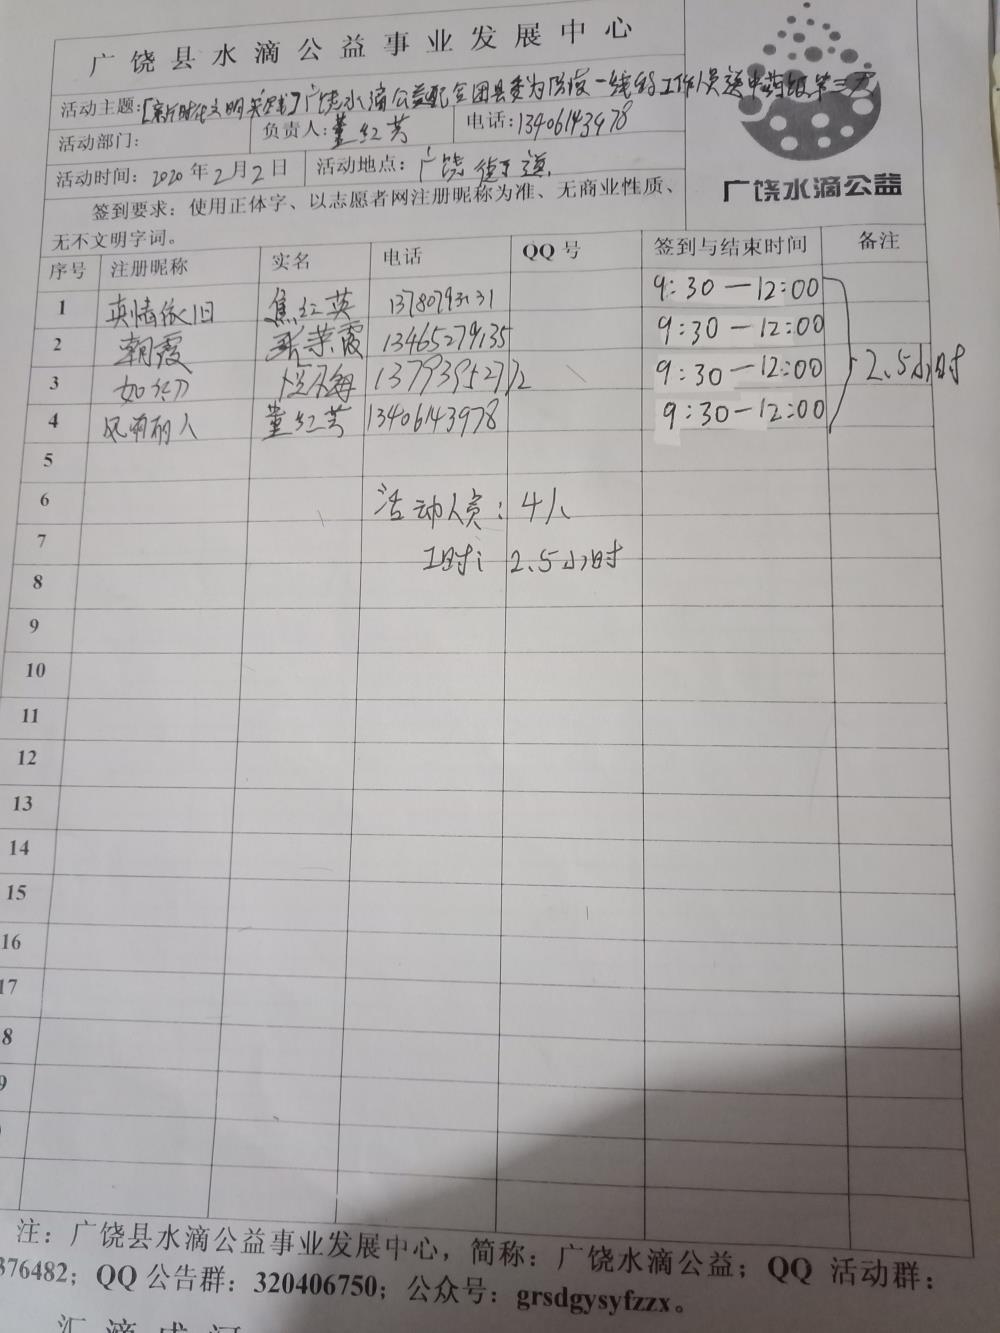 广饶县水滴公益事业发展中心
活动主题:【新时代文明实践】广饶水滴公益配合团县委为防疫一线的工作人员送中药饭第三天
活动部门: 负责人:董红芳 电话:13406143978
活动时间: 2020年2月2日 活动地点: 广饶街道
签到要求: 使用正体字、以志愿者网注册昵称为准、无商业性质、
无不文明字词。
广饶水滴公益
序号 注册昵称 实名 电话 QQ号 签到与结束时间 备注
1 真情依旧 焦红英 13780793131 9:30—12:00
2 朝霞 张荣霞 13465279135 9:30—12:00
3 137939527 9:30—12:00 2.5小时
4 董红芳 13406143978 9:30—12:00
5
6 活动人员: 4人
7 工时: 2.5小时
8
9
10
11
12
13
14
15
16
17
8
9
注: 广饶县水滴公益事业发展中心, 简称: 广饶水滴公益; QQ 活动群:
376482; QQ公告群: 320406750; 公众号: grsdgysyfzzx。
汇滴成河